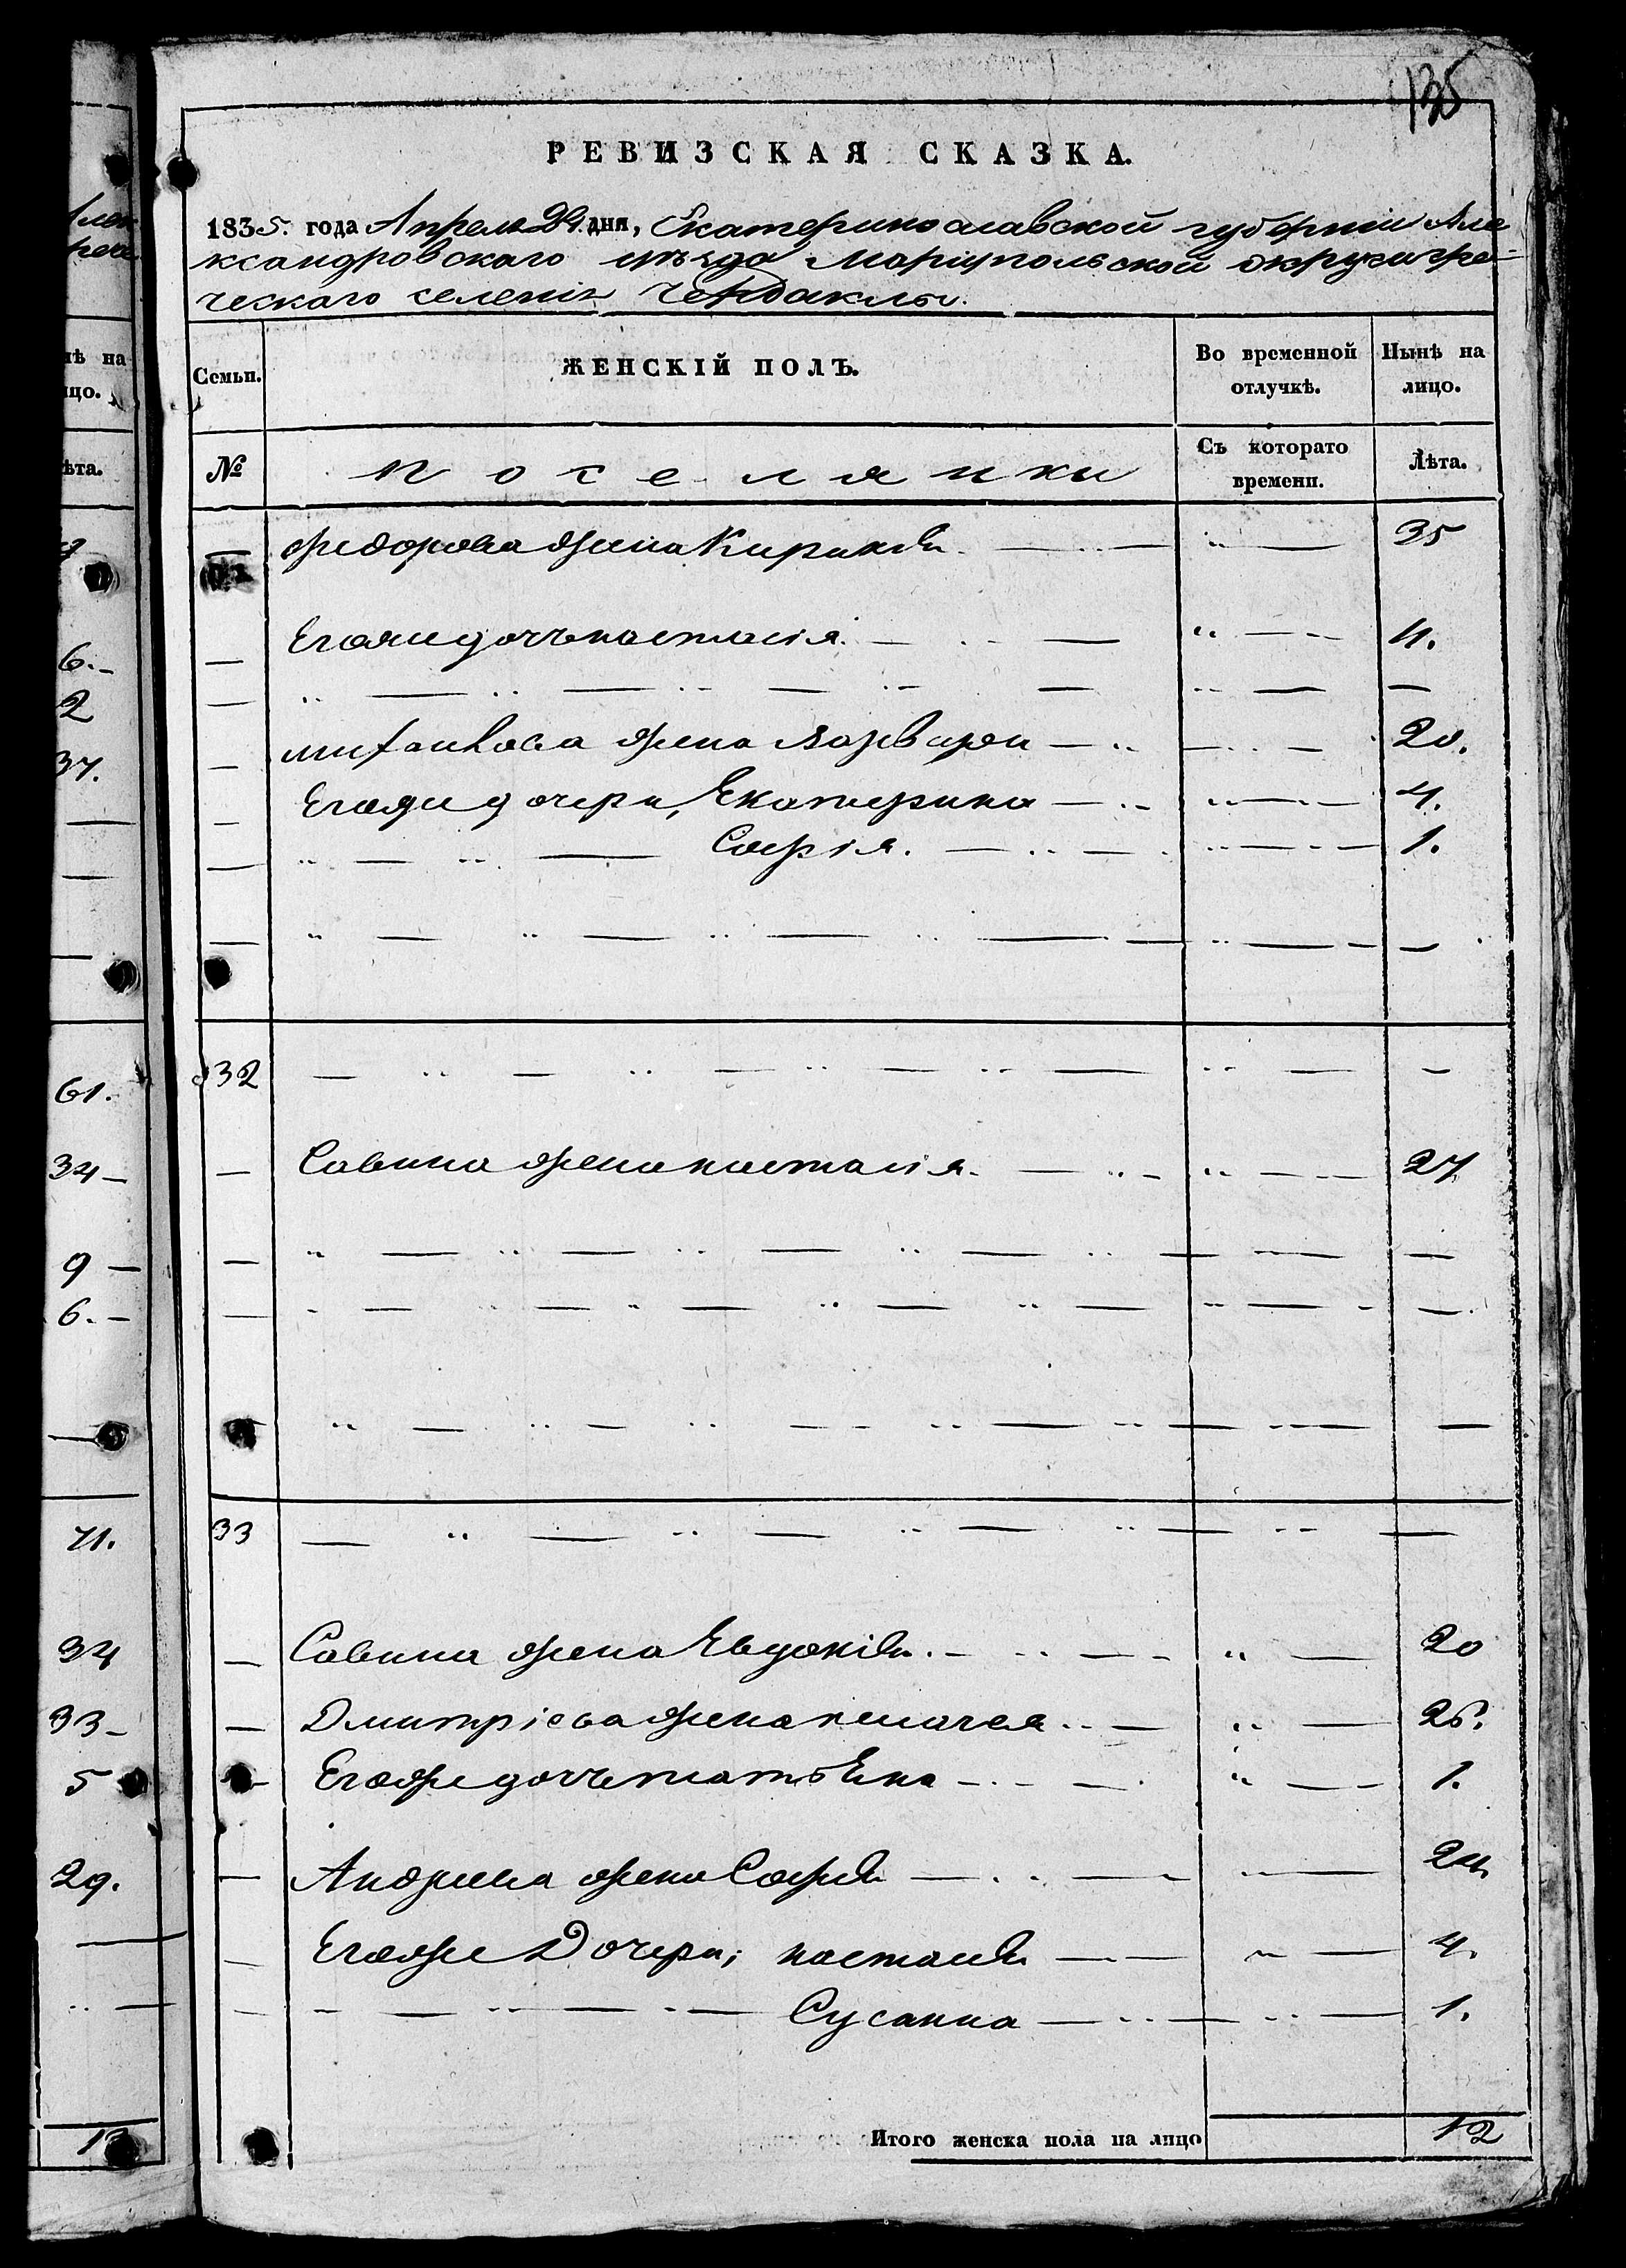 135
РЕВИЗСКАЯ СКАЗКА.
1835. года Апреля 24 дня, Екатеринославской губернии Але
ксандровского уѣзда Маріупольской округи гре-
ческаго селенія Чердаклы.
Семьи. ЖЕНСКІЙ ПОЛЪ. Во временной отлучкѣ. Нынѣ на лицо.
№ Поселянки Съ которато времени. Лѣта.
— Федорова жена Кирикія 35
— Егоже дочь настасія 11.
— Михайлова жена 20.
— Егоже дочери, Екатерина 4.
— Софія. 1.
32
— Савина жена настасія. 27
33
— Савина жена Евдокія. 20
— Дмитріева жена пелагея 26.
— Егоже дочь татьяна 1.
— Андреева жена Софія 24
— Егоже Дочери, настасія 4.
— Сусанна 1.
Итого женска пола на лицо 12
нѣ на
цо.
ѣта.
6.-
2
37.
61.
34-
9 —
6.-
71.
34
33-
5
29.